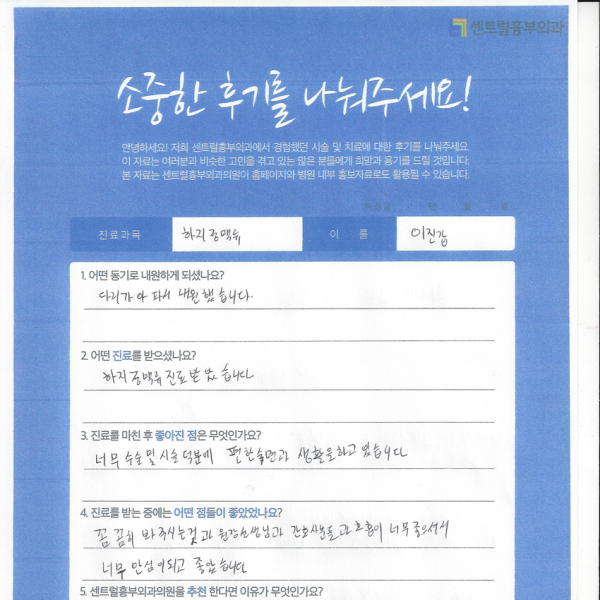 센트럴흉부외과
소중한 후기를 나눠주세요!
안녕하세요! 저희 센트럴흉부외과에서 경험했던 시술 및 치료에 대한 후기를 나눠주세요.
이 자료는 여러분과 비슷한 고민을 겪고 있는 많은 분들에게 희망과 용기를 드릴 것입니다.
본 자료는 센트럴흉부외과의원이 홈페이지와 병원 내부 홍보자료로도 활용될 수 있습니다.
진료과목 하지정맥류 이 름 이진갑
1. 어떤 동기로 내원하게 되셨나요?
다리가 아파서 내원했습니다.
2. 어떤 진료를 받으셨나요?
하지정맥류 진료받았습니다
3. 진료를 마친 후 좋아진 점은 무엇인가요?
너무 수술 및 시술덕분에 편한숙면과 생활을하고 있습니다
4. 진료를 받는 중에는 어떤 점들이 좋았었나요?
꼼꼼히 봐주시는것과 원장선생님과 간호사분들과 호흡이 너무좋으셔서
너무 안심이되고 좋았습니다
5. 센트럴흉부외과의원을 추천 한다면 이유가 무엇인가요?